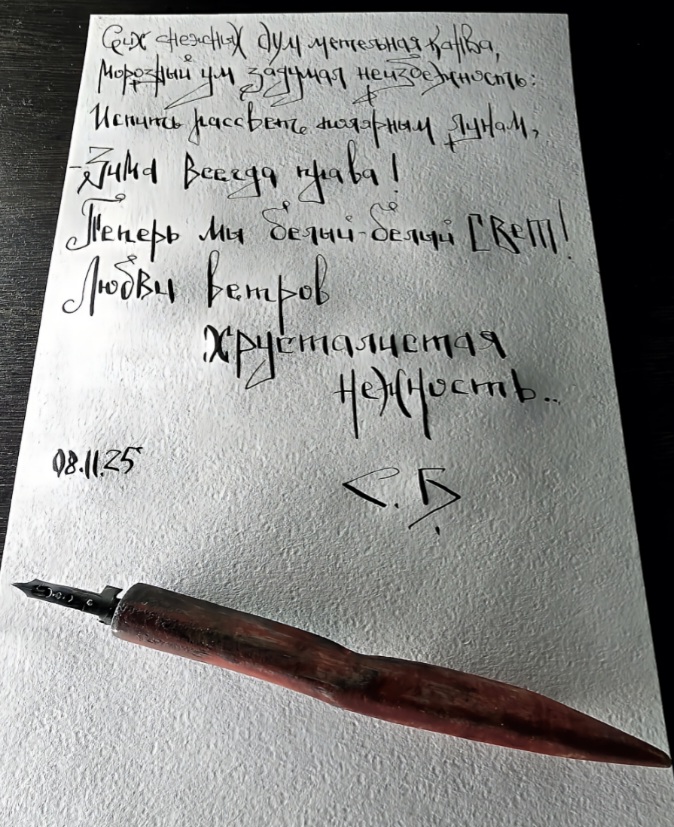 Сих снежных дум метельная канва,
Морозный ум задумал неизбежность:
Испить рассвет полярным лунам,
Зима всегда права!
Теперь мы белый-белый свет!
Любви ветров
хрусталистая
нежность..
08.11.25
С.Б